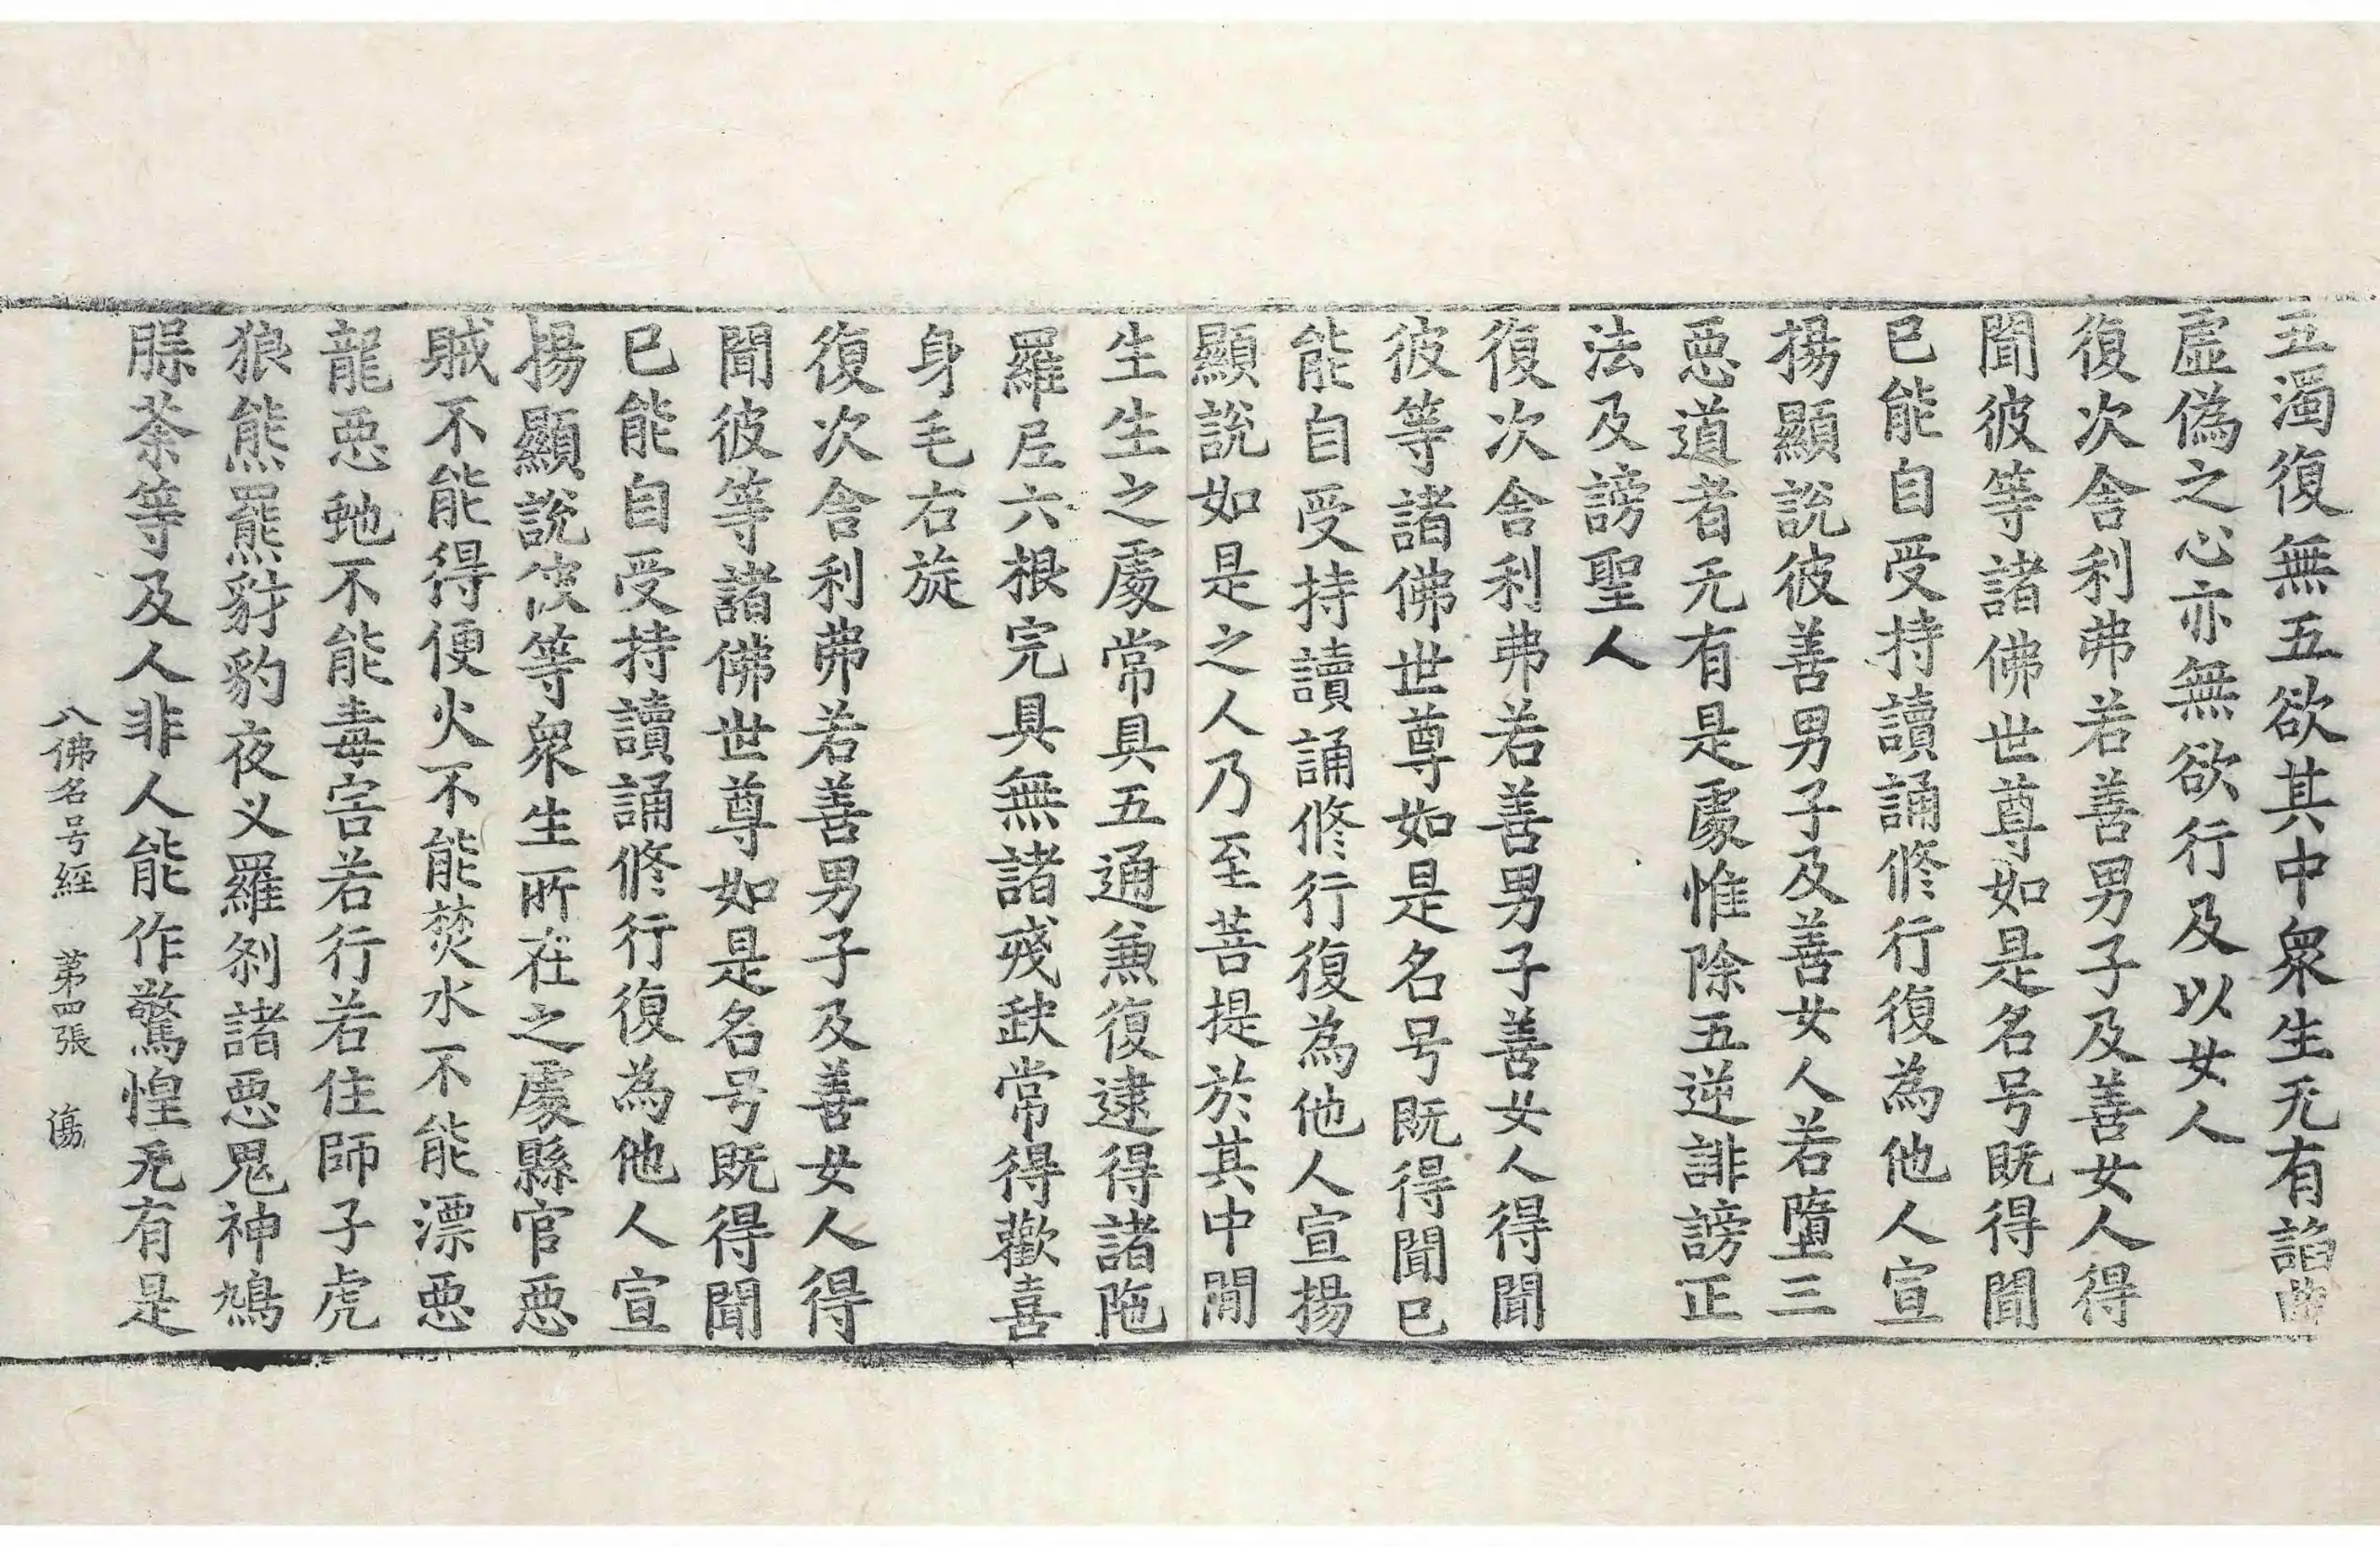 五濁復無五欲其中衆生无有諂曲
虛偽之心亦無欲行及以女人
復次舍利弗若善男子及善女人得
聞彼等諸佛世尊如是名号既得聞
已能自受持讀誦修行復為他人宣
揚顯說彼善男子及善女人若墮三
惡道者无有是處惟除五逆誹謗正
法及謗聖人
復次舍利弗若善男子善女人得聞
彼等諸佛世尊如是名号既得聞已
能自受持讀誦修行復為他人宣揚
顯說如是之人乃至菩提於其中閒
生生之處常具五通兼復逮得諸陁
羅尼六根完具無諸殘缺常得歡喜
身毛右旋
復次舍利弗若善男子及善女人得
聞彼等諸佛世尊如是名号既得聞
已能自受持讀誦修行復為他人宣
揚顯說彼等衆生所在之處縣官惡
賊不能得便火不能焚水不能漂惡
龍惡虵不能毒害若行若住師子虎
狼熊羆豺豹夜叉羅剎諸惡鬼神鳩
脲荼等及人非人能作驚惶无有是
八佛名号經 第四張 傷